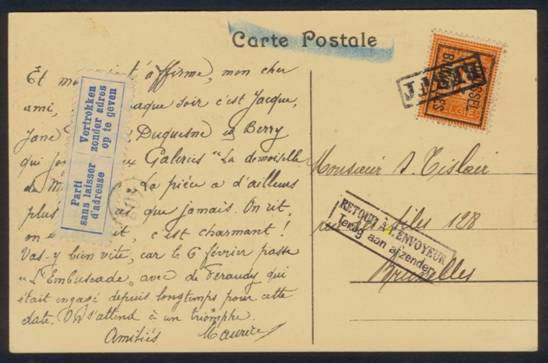 Carte Postale
Et maintenant t'affirme, mon cher
ami, chaque soir c'est Jacque,
Jane Duquesne et Berry
qui Galeries "La demoiselle
de M La pièce a d'ailleurs
plus que jamais. On rit,
on c'est charmant !
Vas-y bien vite, car le 6 février passe
"L'Embuscade" avec de Feraudy qui
était engagé depuis longtemps pour cette
date. On s'attend à un triomphe.
Amitiés Maurice
Parti
sans laisser
d'adresse
Vertrokken
zonder adres
op te geven
Monsieur
128
RETOUR A L'ENVOYEUR
Terug aan afzender
Bruxelles